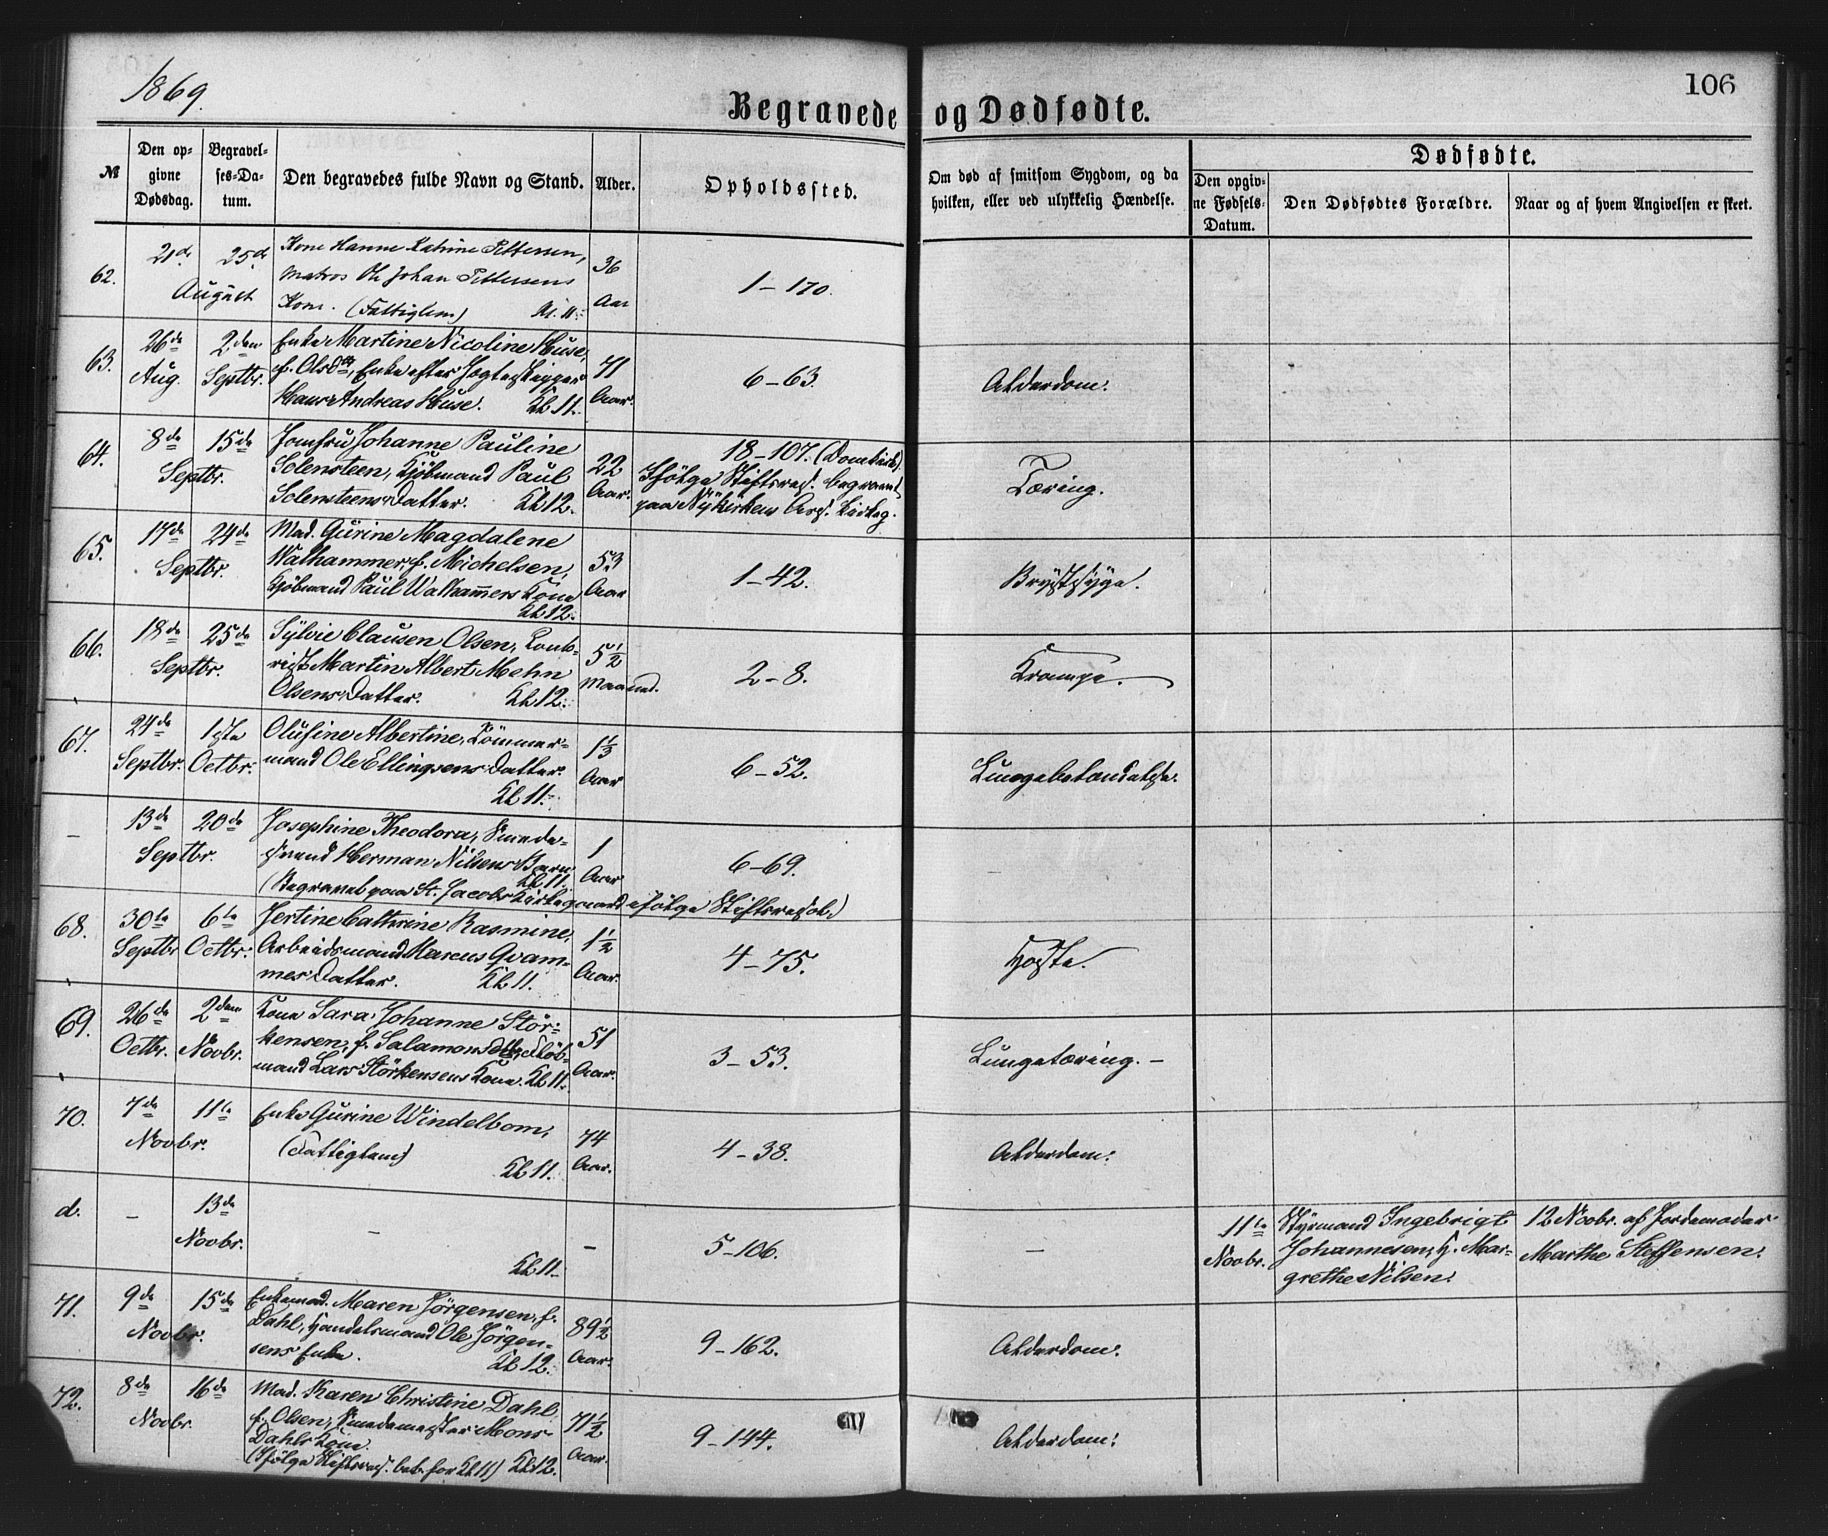 1869.
106
Begravede og Dødfødte.
№
Den op-
givne
Dødsdag.
Begravel-
ses-Da-
tum.
Den begravedes fulde Navn og Stand.
Alder.
Opholdssted.
Om død af smitsom Sygdom, og da
hvilken, eller ved ulykkelig Hændelse.
Dødfødte.
Den opgiv-
ne Fødsels-
Datum.
Den Dødfødtes Forældre.
Naar og af hvem Angivelsen er skeet.
62.
21de 25de
August
Kone Hanne Katrine Pettersen,
Matros Ole Johan Pettersens
Kone. (Fattiglem) Kl. 11.
36
Aar
1-170.
63.
26de
Aug.
2den
Septbr.
Enke Martine Nicoline Huse,
f. Olsdtr, Enke efter Jægteskipper
Hans Andreas Huse. Kl 11.
71
Aar.
6-63.
Alderdom.
64.
8de 15de
Septbr.
Jomfru Johanne Pauline
Solensteen, Kjøbmand Paul
Solensteens Datter. Kl 12.
22
Aar.
18-107. (Domkirk.)
Ifølge Stiftsres. begravet
paa Nykirkens Ass. Kirkeg.
Tæring.
65.
17de 24de
Septbr.
Mad. Gurine Magdalene
Walhammer, f. Michelsen,
Kjøbmand Paul Walhammers Kone
Kl 12.
53
Aar
1-42.
Brystsyge.
66.
18de 25de
Septbr.
Sylvie Clausen Olsen, Conto-
rist Martin Albert Mehn
Olsens Datter. Kl 12.
5½
Maaned.
2-8.
Krampe.
67.
24de
Septbr.
1ste
Octbr.
Olusine Albertine, Tømmer-
mand Ole Ellingsens Datter.
Kl 11.
1⅓
Aar
6-52.
Lungebetændelse.
-
13de 20de
Septbr.
Josephine Theodora, Smede-
svend Herman Nilsens Barn
Kl 11.
(Begravet paa St. Jacobs Kirkegaard ifølge Stiftsresol.)
1
Aar
6-69.
68.
30te
Septbr
6te
Octbr.
Jertine Cathrine Rasmine,
Arbeidsmand Marcus Qvam-
mes Datter. Kl 11.
1½
Aar.
4-75.
Hoste.
69.
26de
Octbr.
2den
Novbr.
Kone Sara Johanne Stör-
kensen, f. Salamonsdtr,
mand Lars Störkensens Kone. Kl 11.
51
Aar.
3-53.
Lungetæring. -
70.
7de 11te
Novbr.
Enke Gurine Windelbom,
(Fattiglem)
Kl 11.
74
Aar.
4-38.
Alderdom.
d.
-
13de
Novbr.
-
Kl 11.
-
5-106.
-
11te
Novbr.
Styrmand Ingebrigt
Johannesen, H. Mar-
grethe Nilsen.
12 Novbr. af Jordemoder
Marthe Steffensen.
71.
9de 15de
Novbr.
Enkemad. Maren Jörgensen, f.
Dahl, Handelsmand Ole Jörgen-
sens Enke. Kl 12.
89½
Aar.
9-162.
Alderdom.
72.
8de 16de
Novbr.
Mad. Karen Christine Dahl
f. Olsen, Smedemester Mons
Dahls Kone.
(Ifølge Stiftsres. bet. for Kl 11) Kl 12.
71½
Aar.
9-144.
Alderdom.